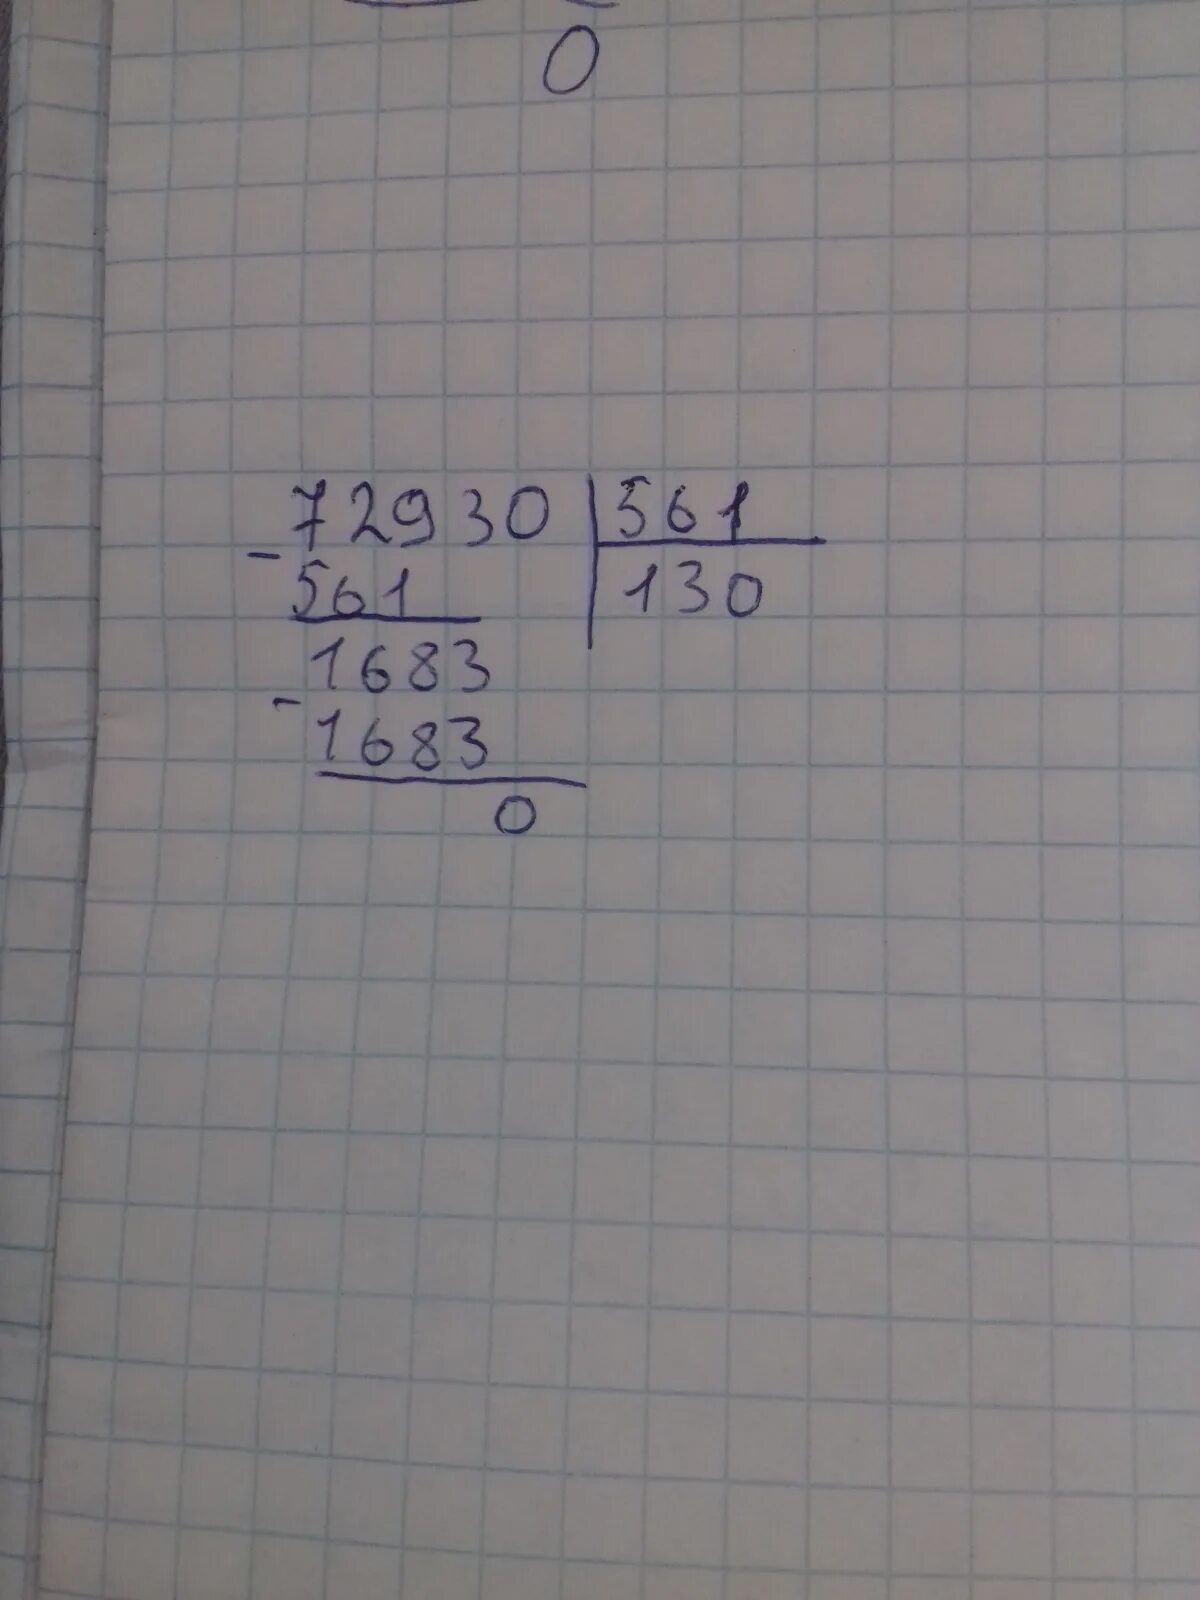 0
72930 561
- 561 130
1683
- 1683
0